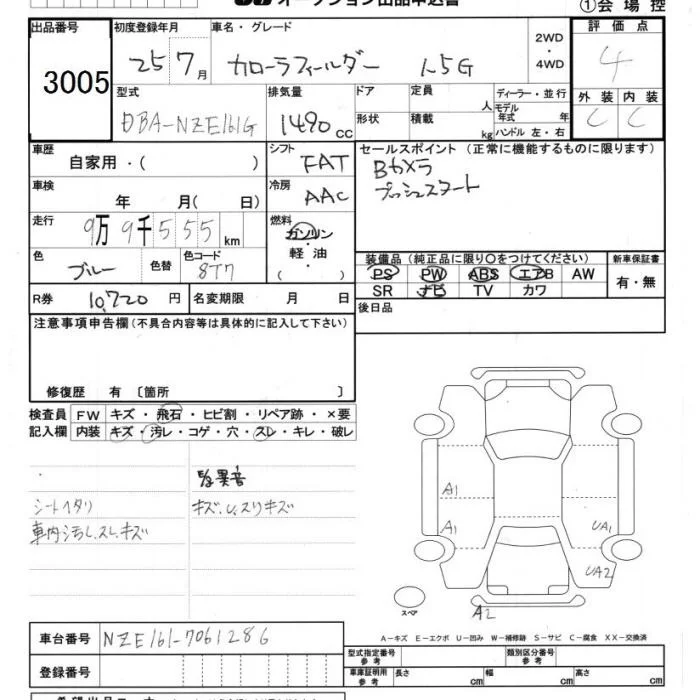 オークション出品申込書 ①会場控
出品番号 初度登録年月 車名・グレード 評価点
3005 25 7月 カローラフィールダー 1.5G 2WD・4WD 4
型式 排気量 ドア 定員 人 ディーラー・並行 外装 内装
DBA-NZE161G 1490cc 形状 積載 kg モデル年式 年 ハンドル 左・右 C C
車歴 自家用・( ) シフト FAT セールスポイント (正常に機能するものに限ります)
Bカメラ
プッシュスタート
車検 年 月( 日) 冷房 AAC
走行 9万9千555km 燃料 ガソリン・軽油 ( ・ )
色 ブルー 色替 色コード 8T7
装備品(純正品に限り〇をつけてください) 新車保証書
PS PW ABS エアB AW 有・無
SR ナビ TV カワ
R券 10,720円 名変期限 月 日 後日品
注意事項申告欄(不具合内容等は具体的に記入して下さい)
修復歴 有〔箇所 〕
検査員 FW キズ・飛石・ヒビ割・リペア跡・×要
記入欄 内装 キズ・汚レ・コゲ・穴・スレ・キレ・破レ
異音
シートヘタリ キズ.U.スリキズ
車内汚レ.スレ.キズ
A1
A1 UA1
UA2
スペア A2
車台番号 NZE161-7061286 A-キズ E-エクボ U-凹み W-補修跡 S-サビ C-腐食 XX-交換済
型式指定番号 参考 類別区分番号 参考
登録番号 車庫証明用 参考 長さ cm 幅 cm 高さ cm